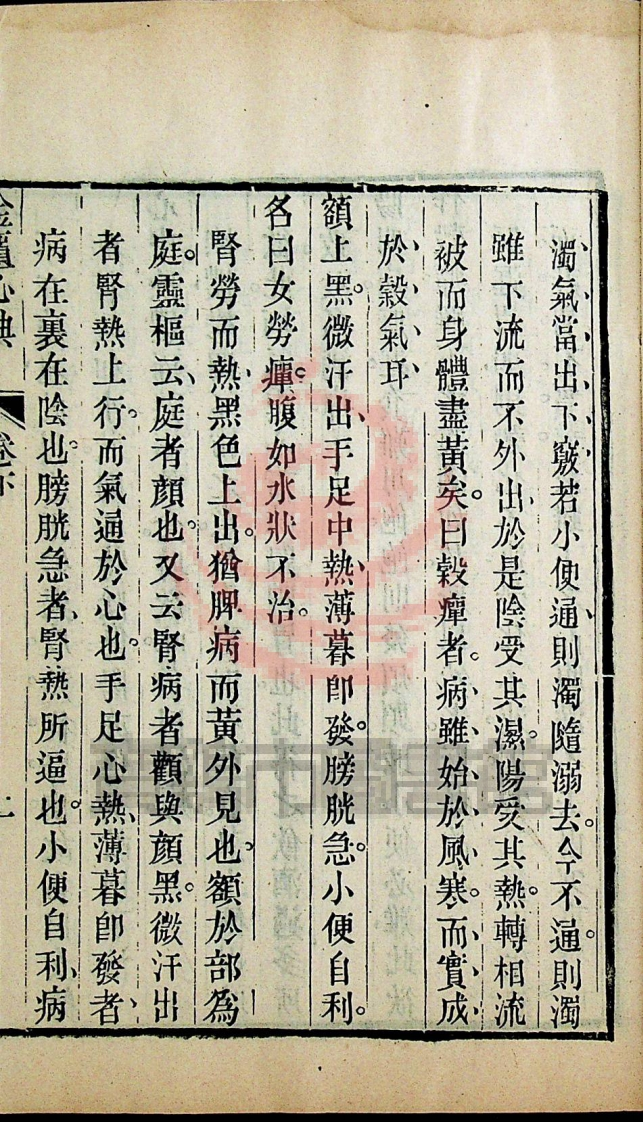 濁氣當出下竅若小便通則濁隨溺去。今不通。則濁
雖下流而不外出於是陰受其濕。陽受其熱。轉相流
被而身體盡黃矣。曰穀癉者。病雖始於風寒。而實成
於穀氣耳
額上黑。微汗出、手足中熱、薄暮卽發。膀胱急。小便自利。
名曰女勞癉。腹如水狀不治。
腎勞而熱、黑色上出。猶脾病而黃外見也、額於部為
庭。靈樞云、庭者顏也。又云腎病者顴與顏黑。微汗出
者腎熱上行。而氣通於心也。手足心熱、薄暮卽發者、
病在裏在陰也。膀胱急者、腎熱所逼也。小便自利、病
金匱心典
卷下